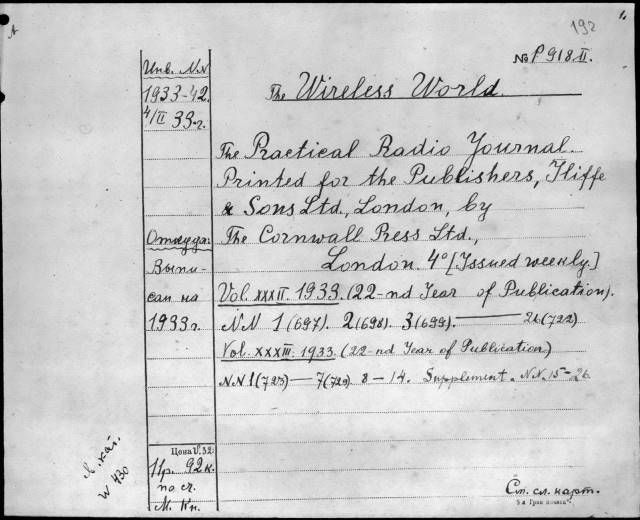 A
1.
192
№ P918.II.
The Wireless World.
Инв. NN
1933-42.
4/II 33-г.
The Practical Radio Journal.
Printed for the Publishers, Iliffe
& Sons Ltd., London, by
The Cornwall Press Ltd.,
London. 4° [Issued weekly]
Откуда:
Выпи-
сан на
1933г.
Vol. XXXII. 1933. (22-nd Year of Publication).
NN 1 (697). 2 (698). 3 (699). — 26 (722)
Vol. XXXIII. 1933. (22-nd Year of Publication)
NN 1 (723) — 7 (729) 8 – 14. Supplement. NN. 15 – 26.
Цена V.32:
11р. 92к.
по сч.
М. Кн.
Л. кат.
W 430
См. сл. карт.